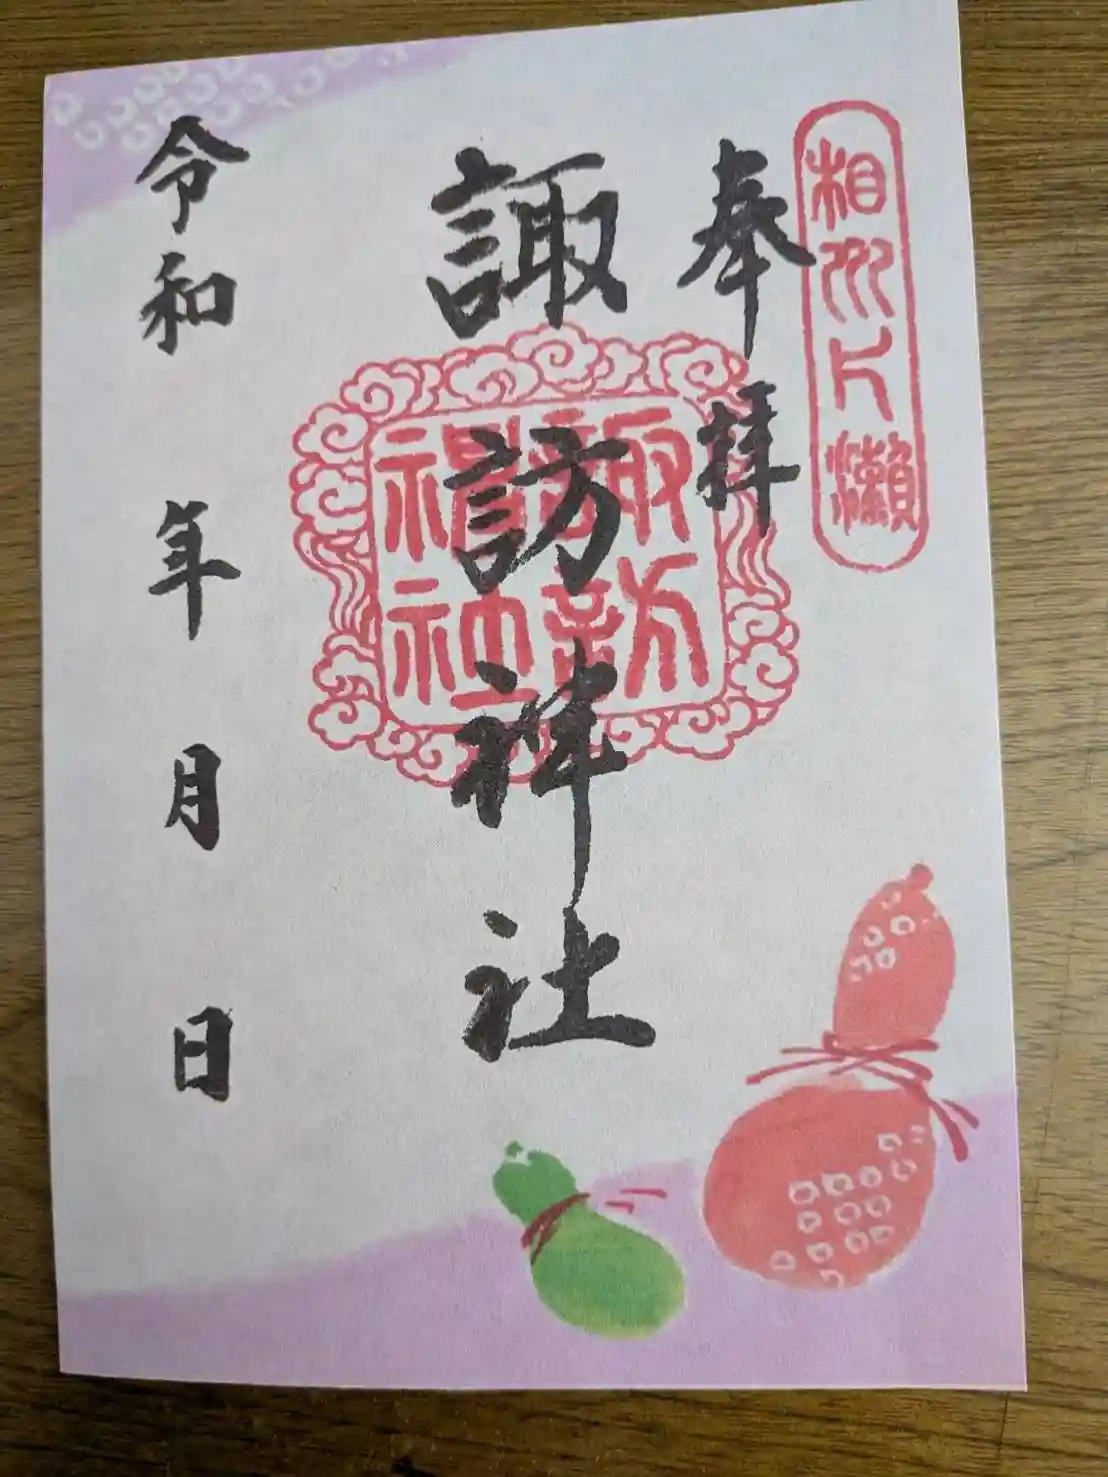 相州片瀬
奉拝
諏訪神社
諏訪
神社
令和 年 月 日